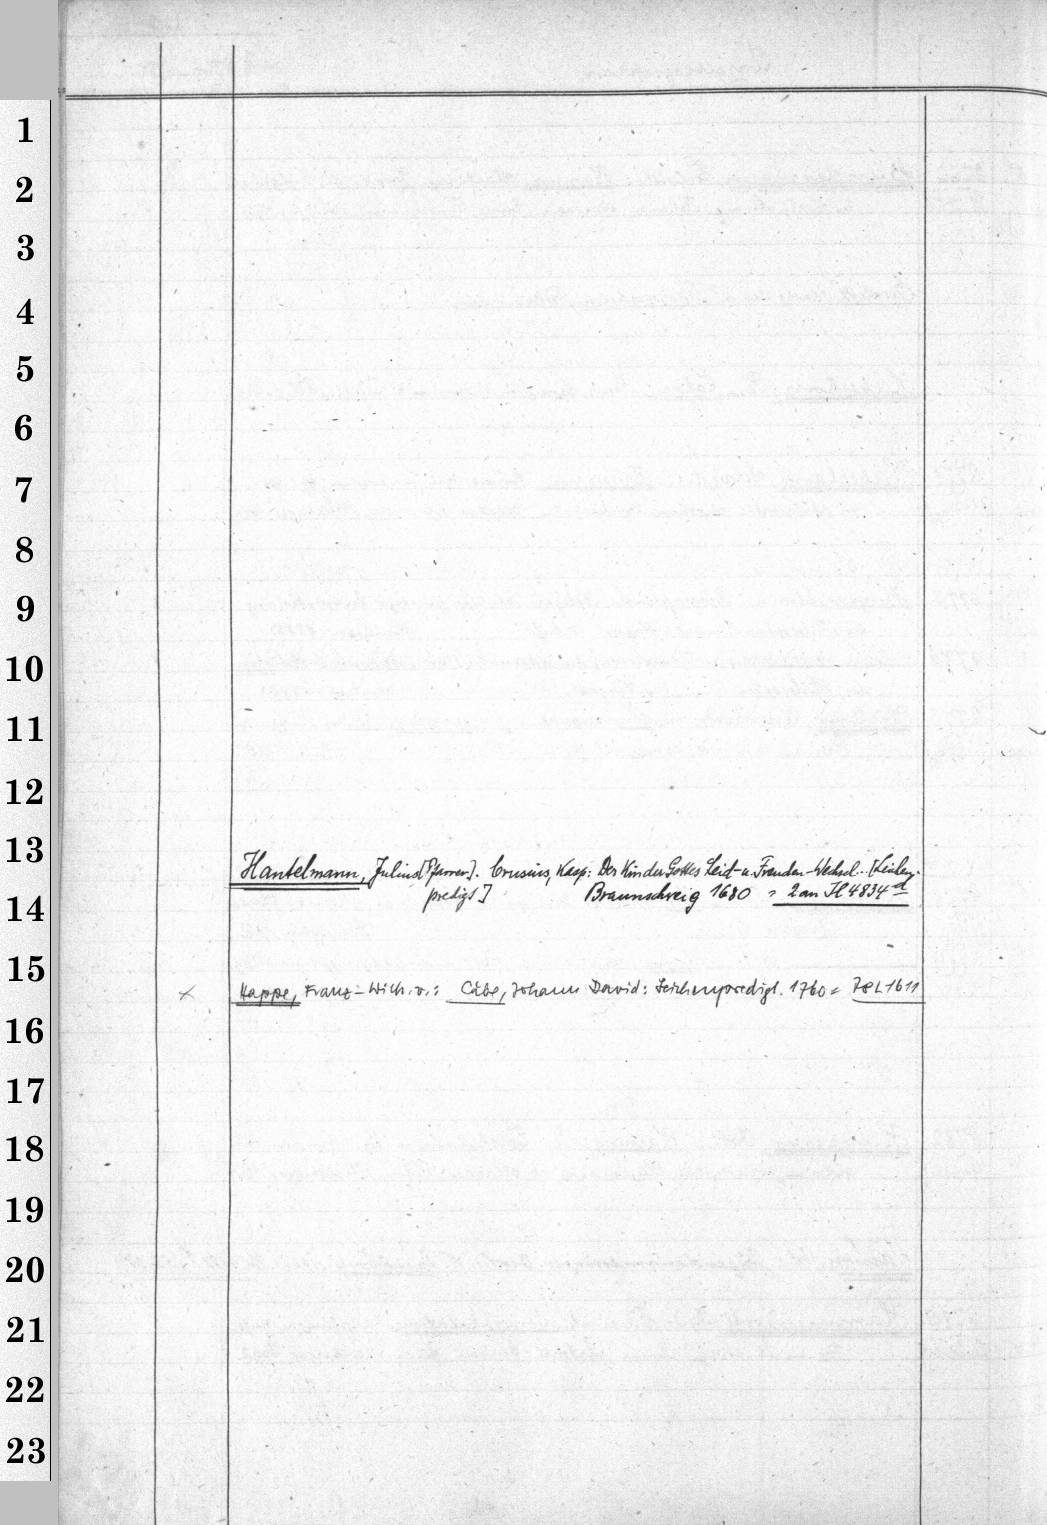 1
2
3
4
5
6
7
8
9
10
11
12
13
Hantelmann, Julius [Pfarrer]. Crusius, Kasp: Der Kinder Gottes Leid- u. Freuden-Wechsel.. [Leichen-
14
predigt] Braunschweig 1680 = 2 an Il 4834 d
15
x Happe, Franz-Wilh. v.: Cäbe, Johann David: Leichenpredigt. 1760 =
16
17
18
19
20
21
22
23